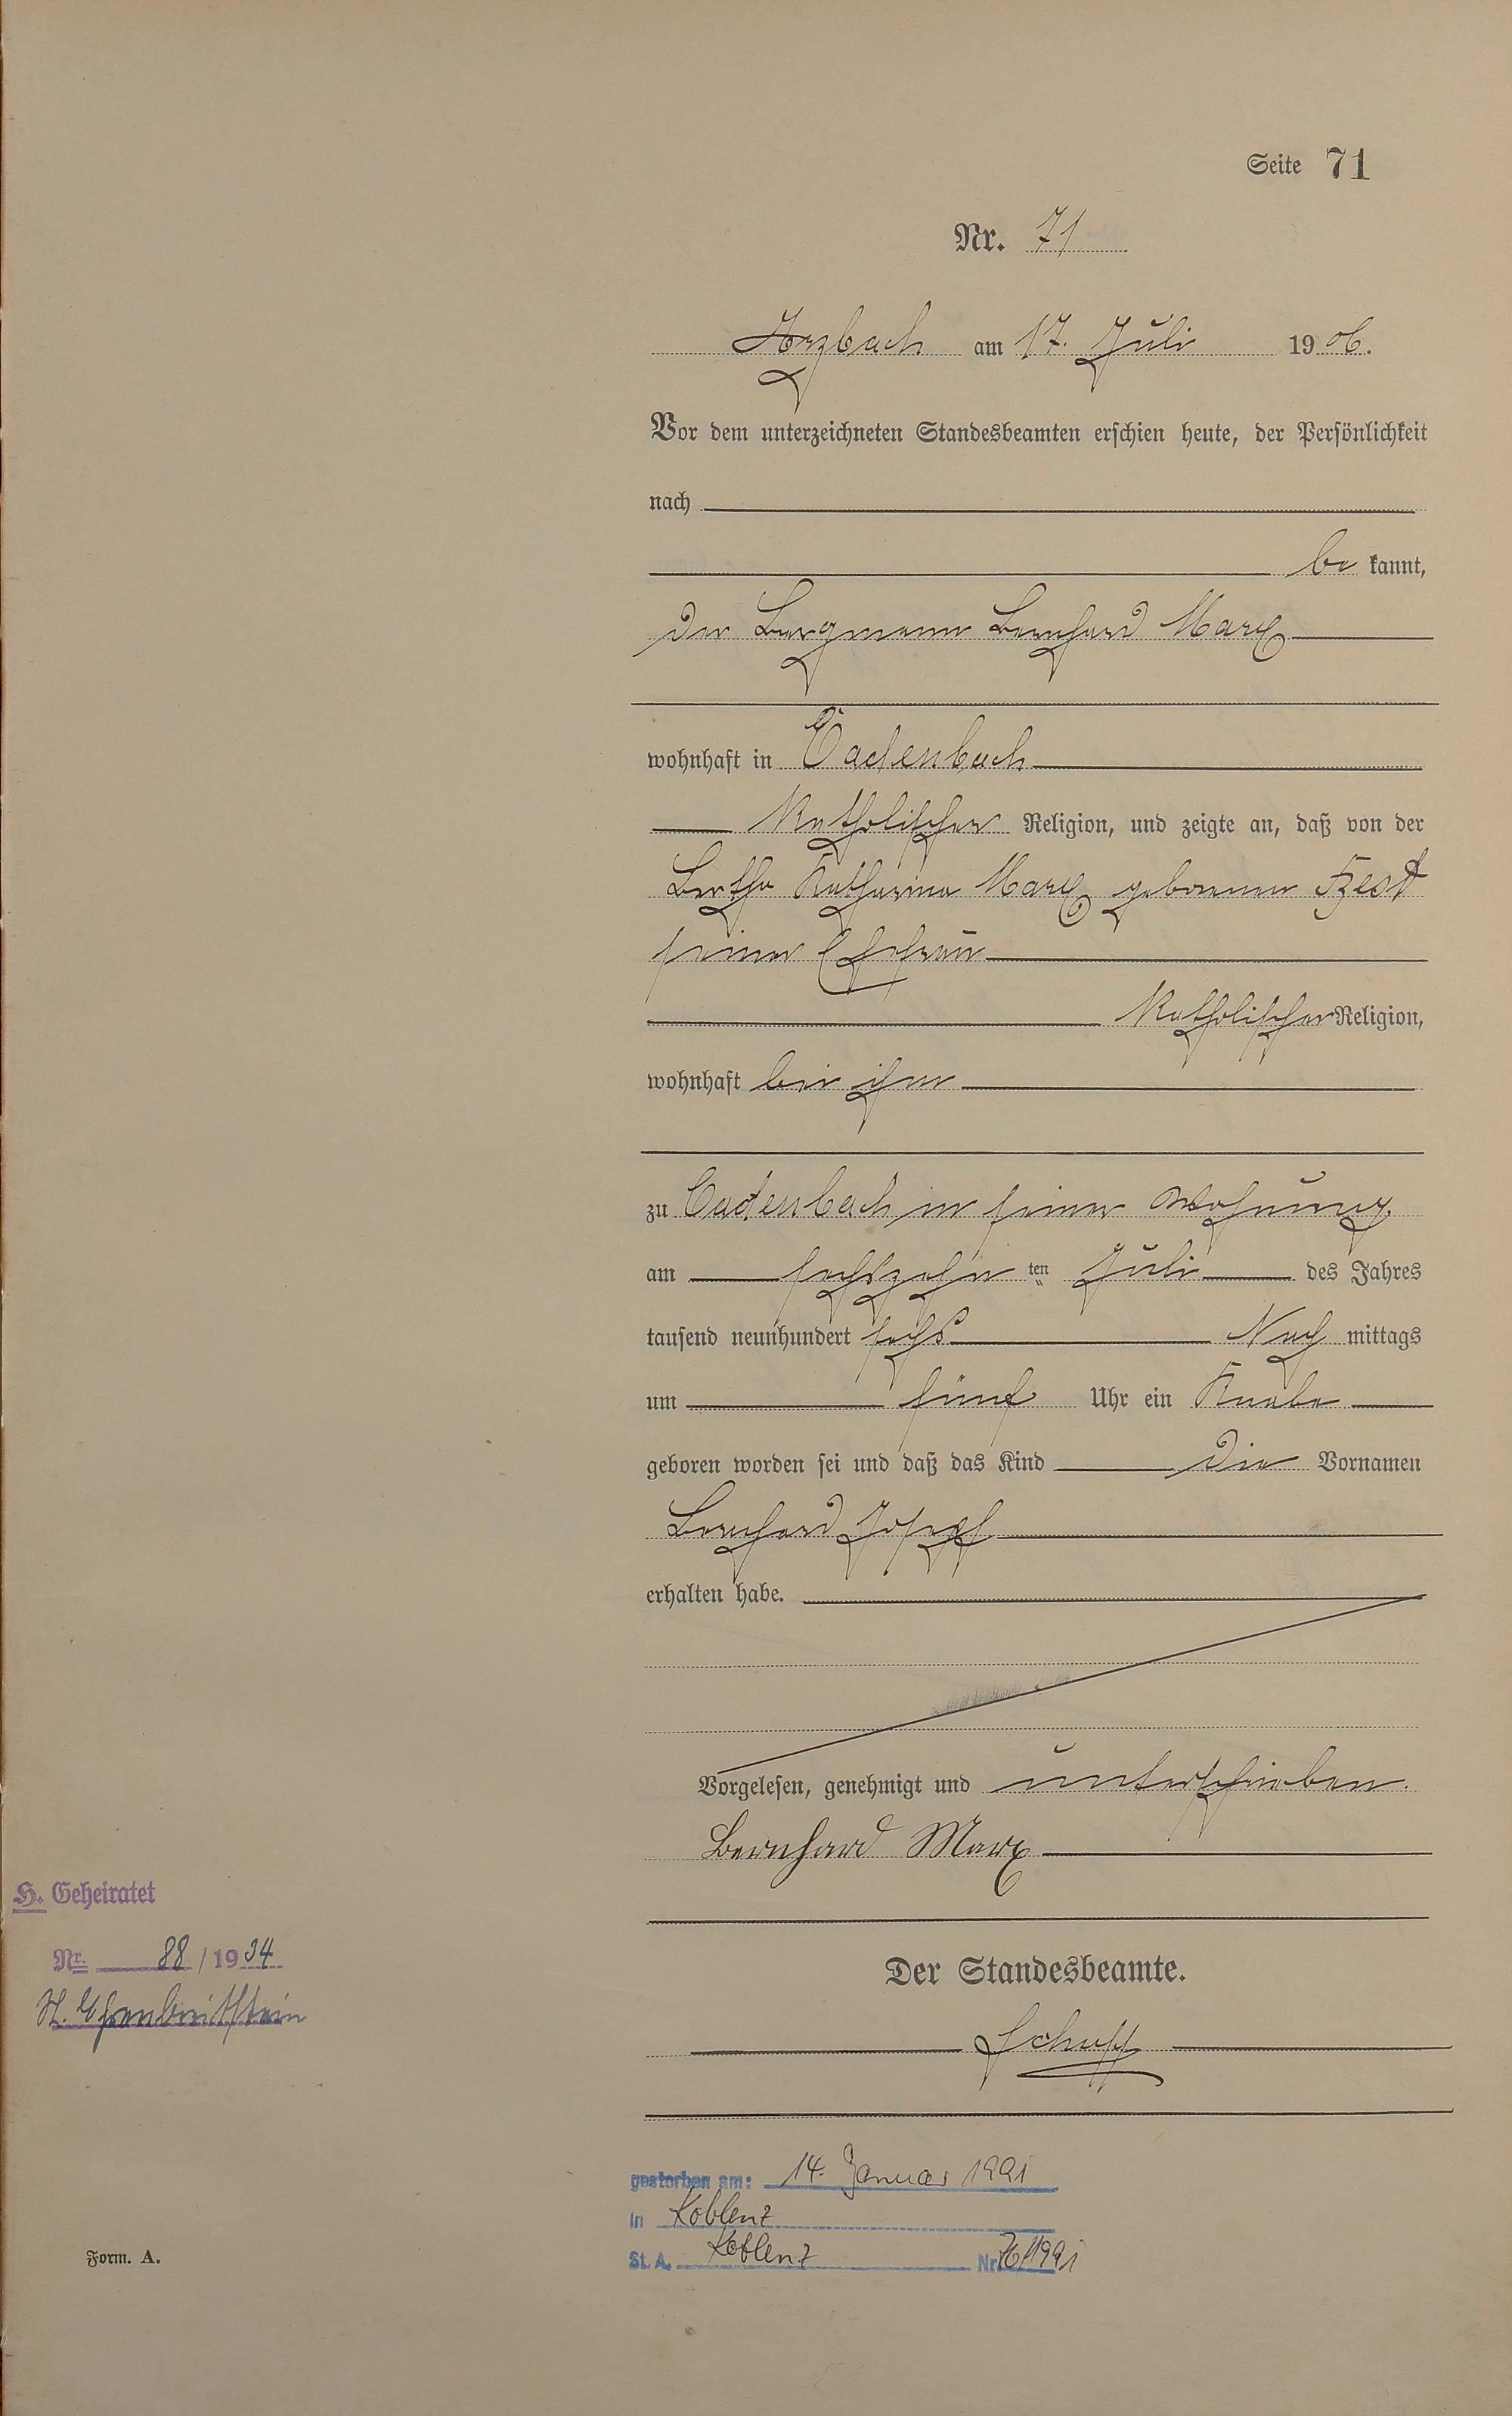 Seite 71
Nr. 71
Arzbach am 17. Juli 1906.
Vor dem unterzeichneten Standesbeamten erschien heute, der Persönlichkeit
nach
be kannt,
der Bergmann Bernhard Marx
wohnhaft in Cadenbach
katholischer Religion, und zeigte an, daß von der
Bertha Katharina Marx geborenen
seiner Ehefrau
katholischer Religion,
wohnhaft bei ihm
zu Cadenbach in seiner Wohnung
am sechszehn ten Juli des Jahres
tausend neunhundert sechs Nach mittags
um fünf Uhr ein Knabe
geboren worden sei und daß das Kind die Vornamen
Bernhard Josef
erhalten habe.
Vorgelesen, genehmigt und unterschrieben.
Bernhard Marx
H. Geheiratet
Nr. 88 / 1934
St. Ehrenbreitstein
Der Standesbeamte.
gestorben am: 14. Januar 1991
in Koblenz
St. A. Koblenz Nr. /1991
Form. A.